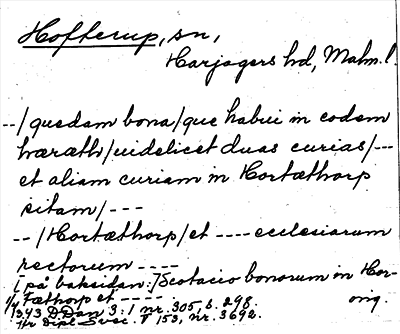 Hofterup, sn,
Harjagers hd, Malm. l.
--/quedam bona/que habui in eodem
hæræth/uidelicet duas curias/---
et aliam curiam in Hortæthorp
sitam/---
--/Hortæthorp/et ---- ecclesiarum
rectorum ----
[på baksidan:]/Scotacio bonorum in Hor-
tæthorp et ---- orig.
1/4 1343 D.Dan 3:1 nr. 305, s. 298.
t/r Dipl Svec. V 153, nr. 3692.